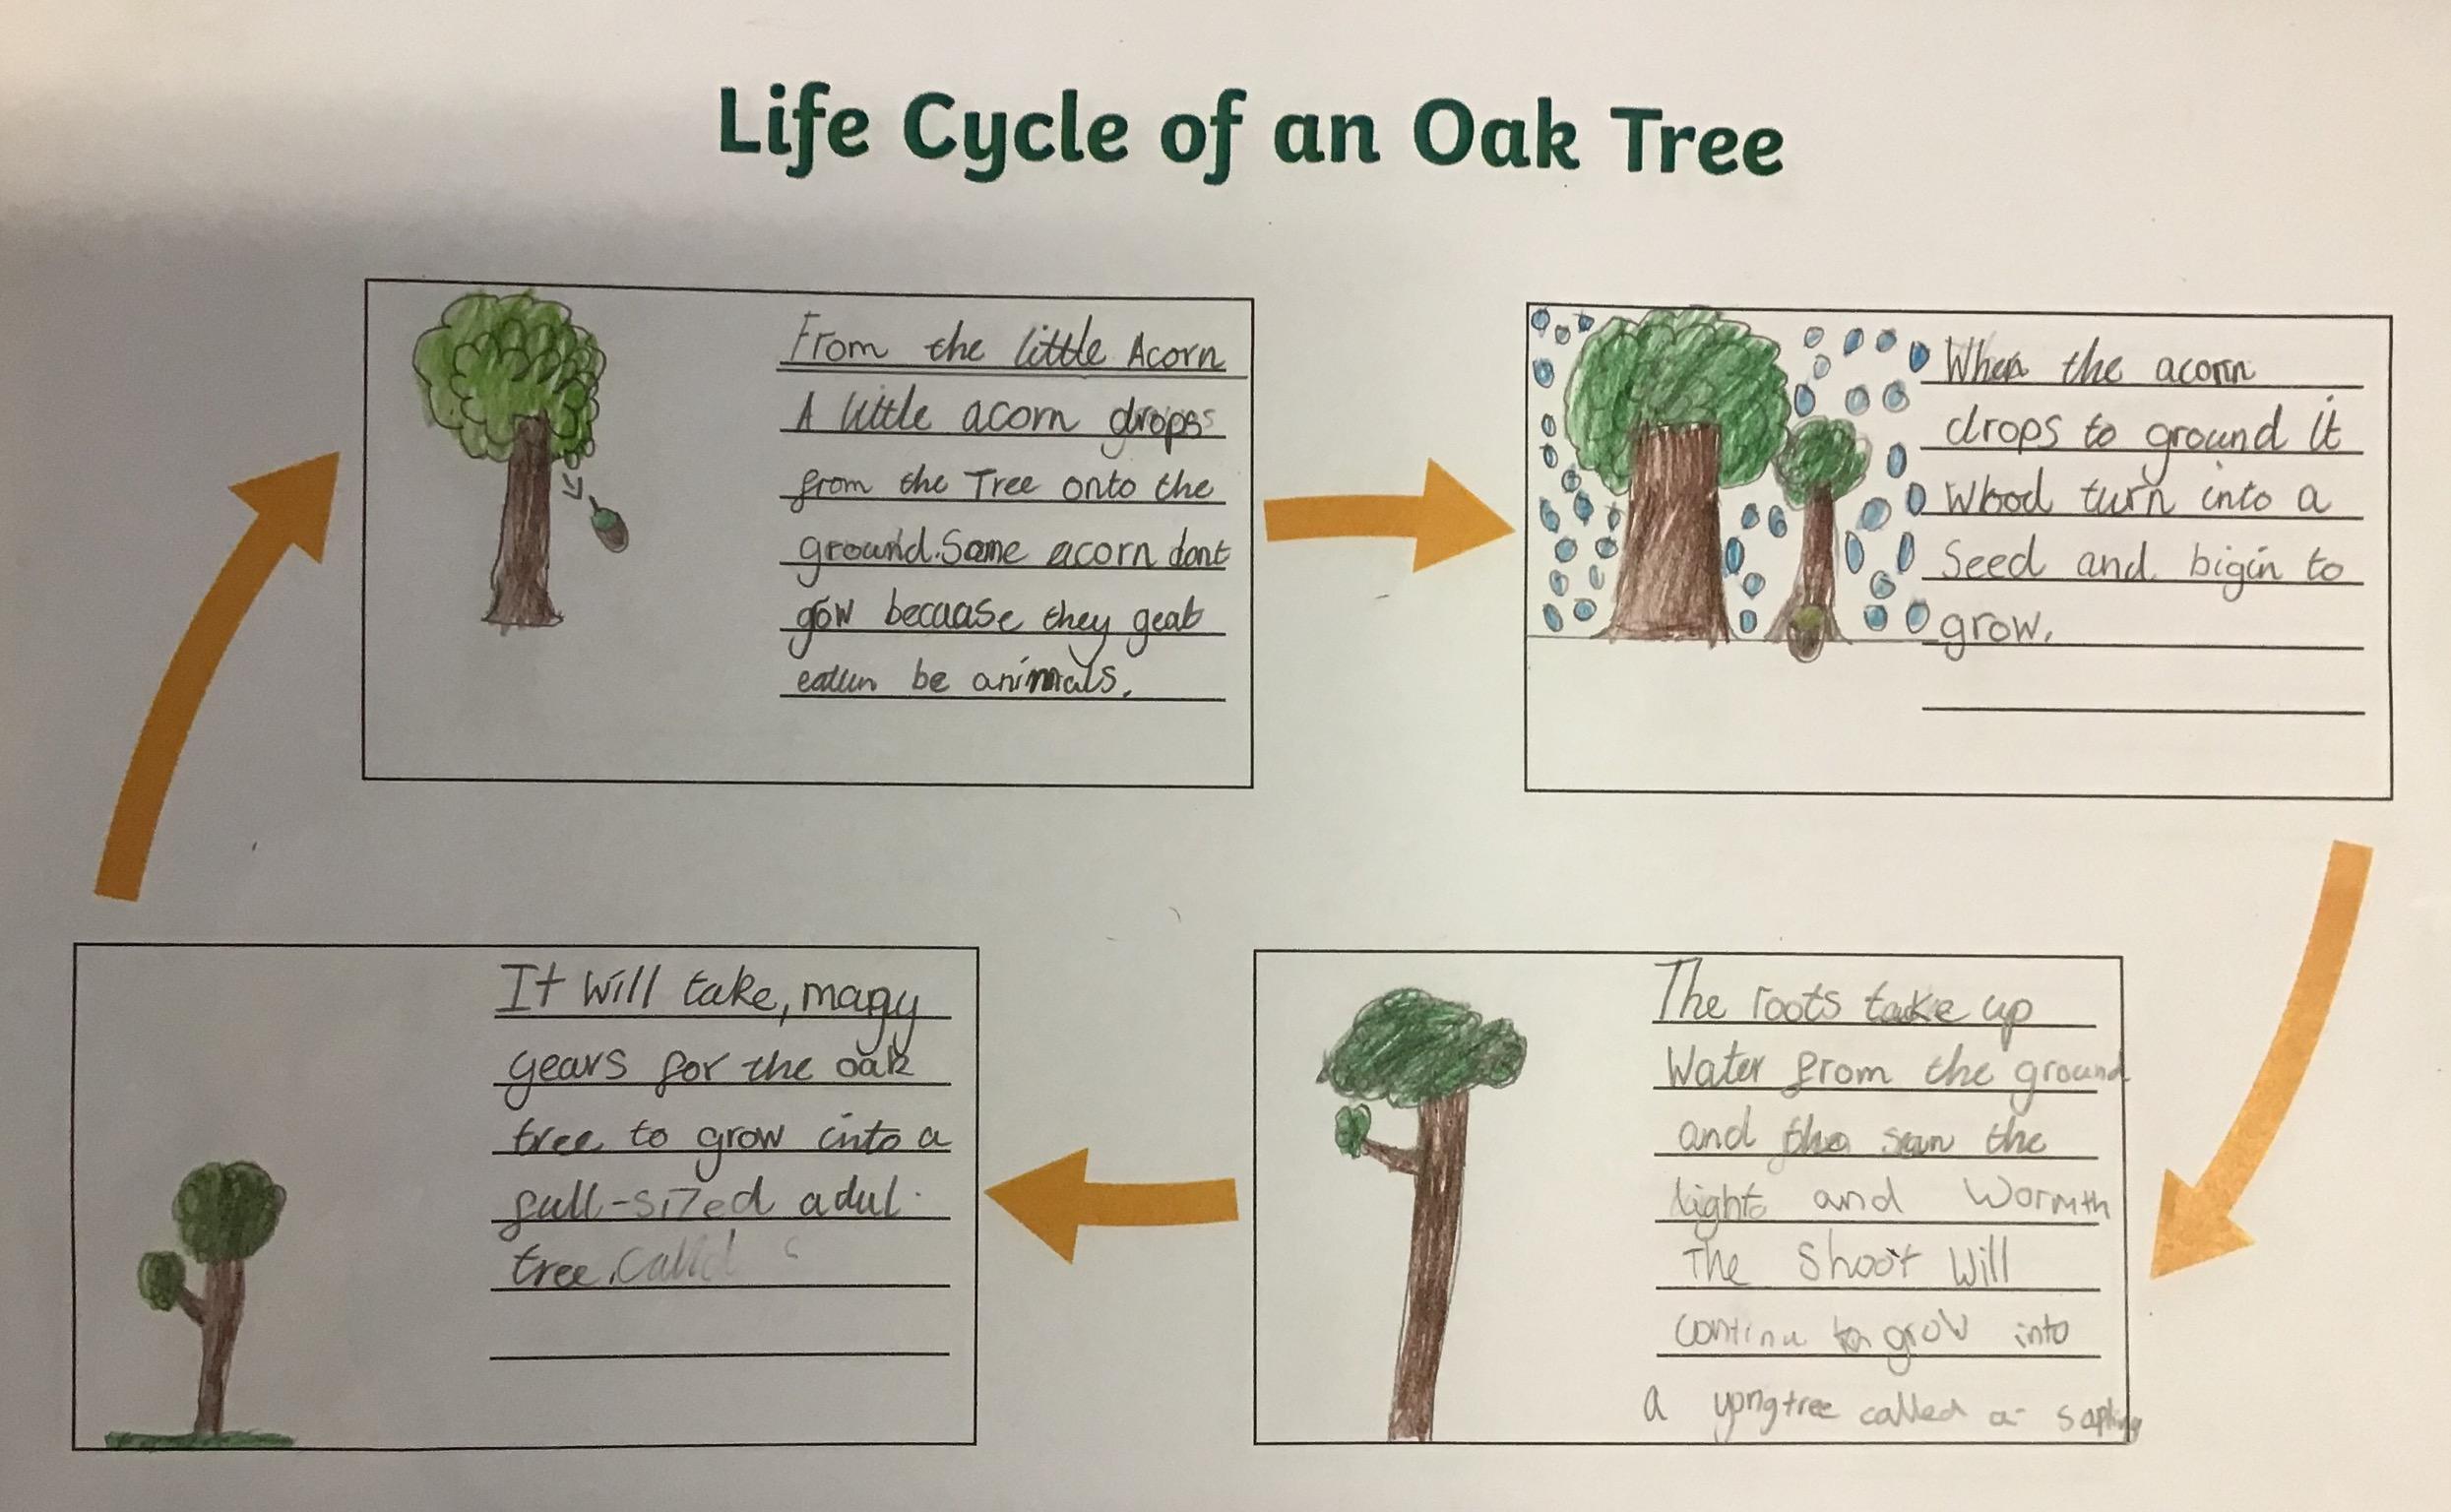 Life Cycle of an Oak Tree
From the little Acorn
A little acorn drops
from the Tree onto the
ground. Some acorn dont
gow becuase they geat
eatun be animals.
When the acorn
drops to ground it
Wood turn into a
Seed and bigin to
grow.
The roots take up
Water from the ground
and the sun the
light and Wormth
The Shoot Will
continu to grow into
a yong tree called a sapling
It Will take, many
years for the oak
tree to grow into a
full-sized adul
tree. Calld